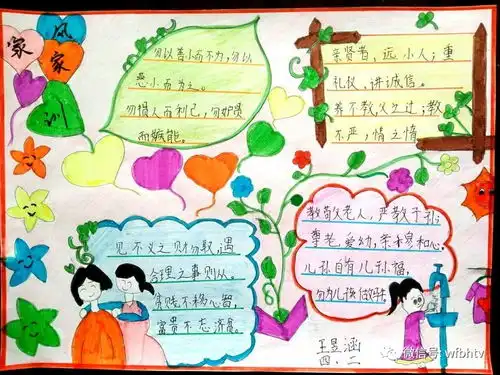 家风家训
勿以善小而不为,勿以
恶小而为之。
勿损人而利己,勿妒贤
而嫉能。
亲贤者,远小人;重
礼仪,讲诚信。
养不教,父之过;教
不严,情之惰。
教敬老人,严教子孙;
尊老爱幼,亲穆和心,
儿孙自有儿孙福,
勿为儿孙做
见不义之财勿取,遇
合理之事则从。
贫贱不移心智,
富贵不忘济贫。
王昱涵
四.二
微信号: wfbhtv